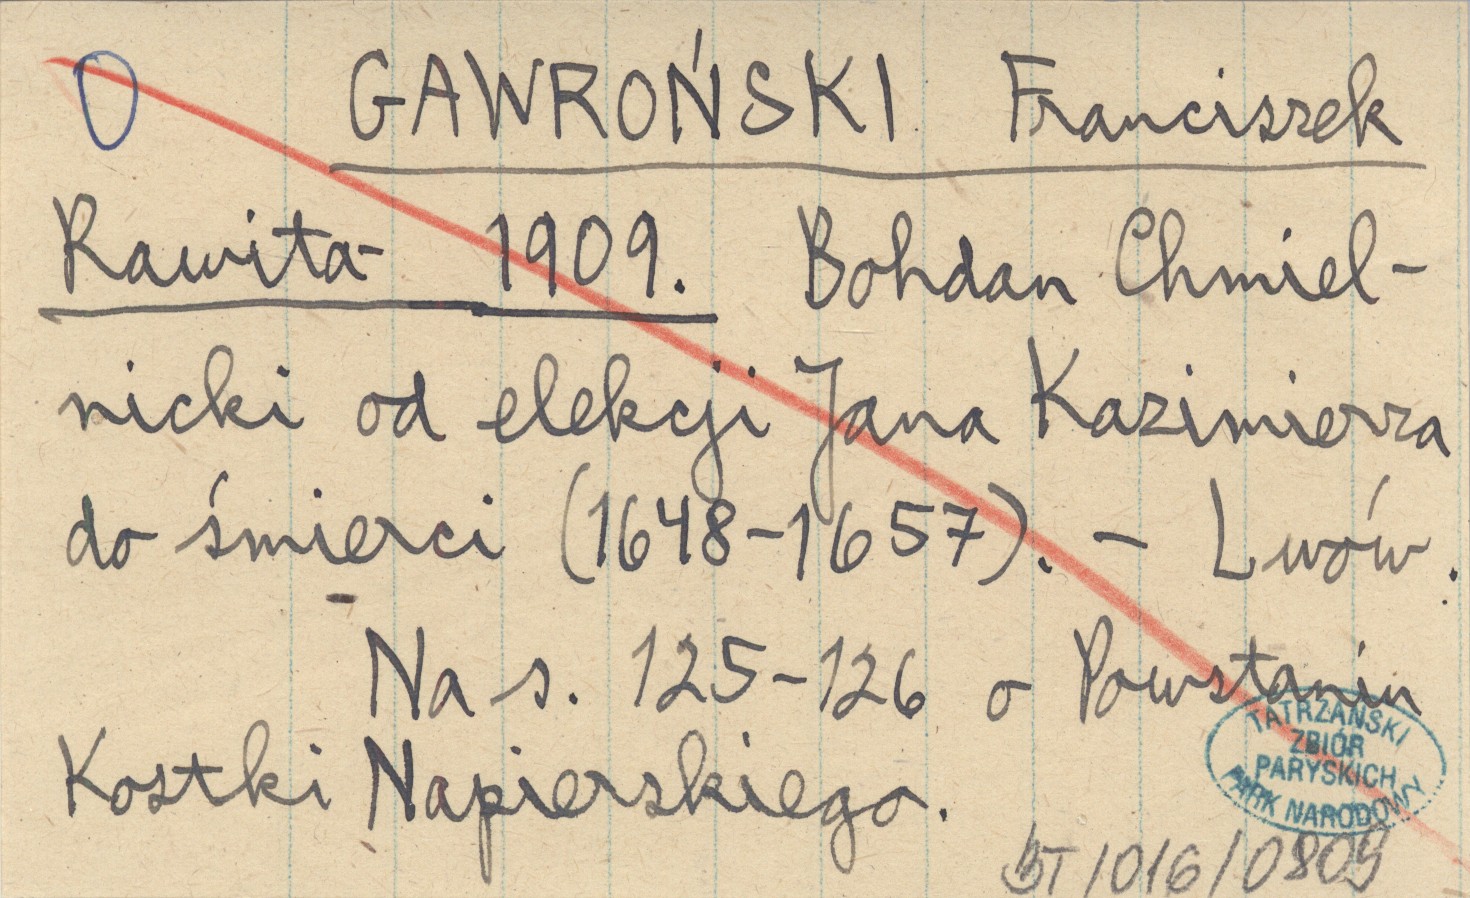 O GAWROŃSKI Franciszek
Rawita- 1909. Bohdan Chmiel-
nicki od elekcji Jana Kazimierza
do śmierci (1648-1657). - Lwów.
Na s. 125-126 o Powstaniu
Kostki Napierskiego.
TATRZAŃSKI
ZBIÓR
PARYSKICH
PARK NARODOWY
BT/016/0809